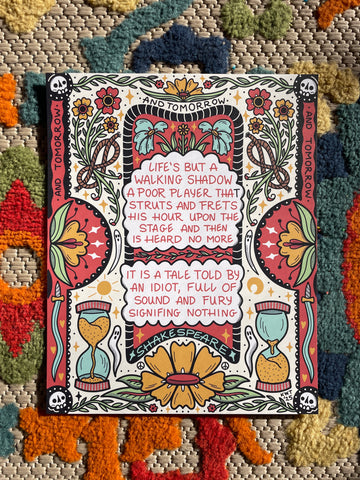 AND TOMORROW
AND TOMORROW
AND TOMORROW
LIFE'S BUT A
WALKING SHADOW
A POOR PLAYER THAT
STRUTS AND FRETS
HIS HOUR UPON THE
STAGE AND THEN
IS HEARD NO MORE
IT IS A TALE TOLD BY
AN IDIOT, FULL OF
SOUND AND FURY
SIGNIFING NOTHING
SHAKESPEARE